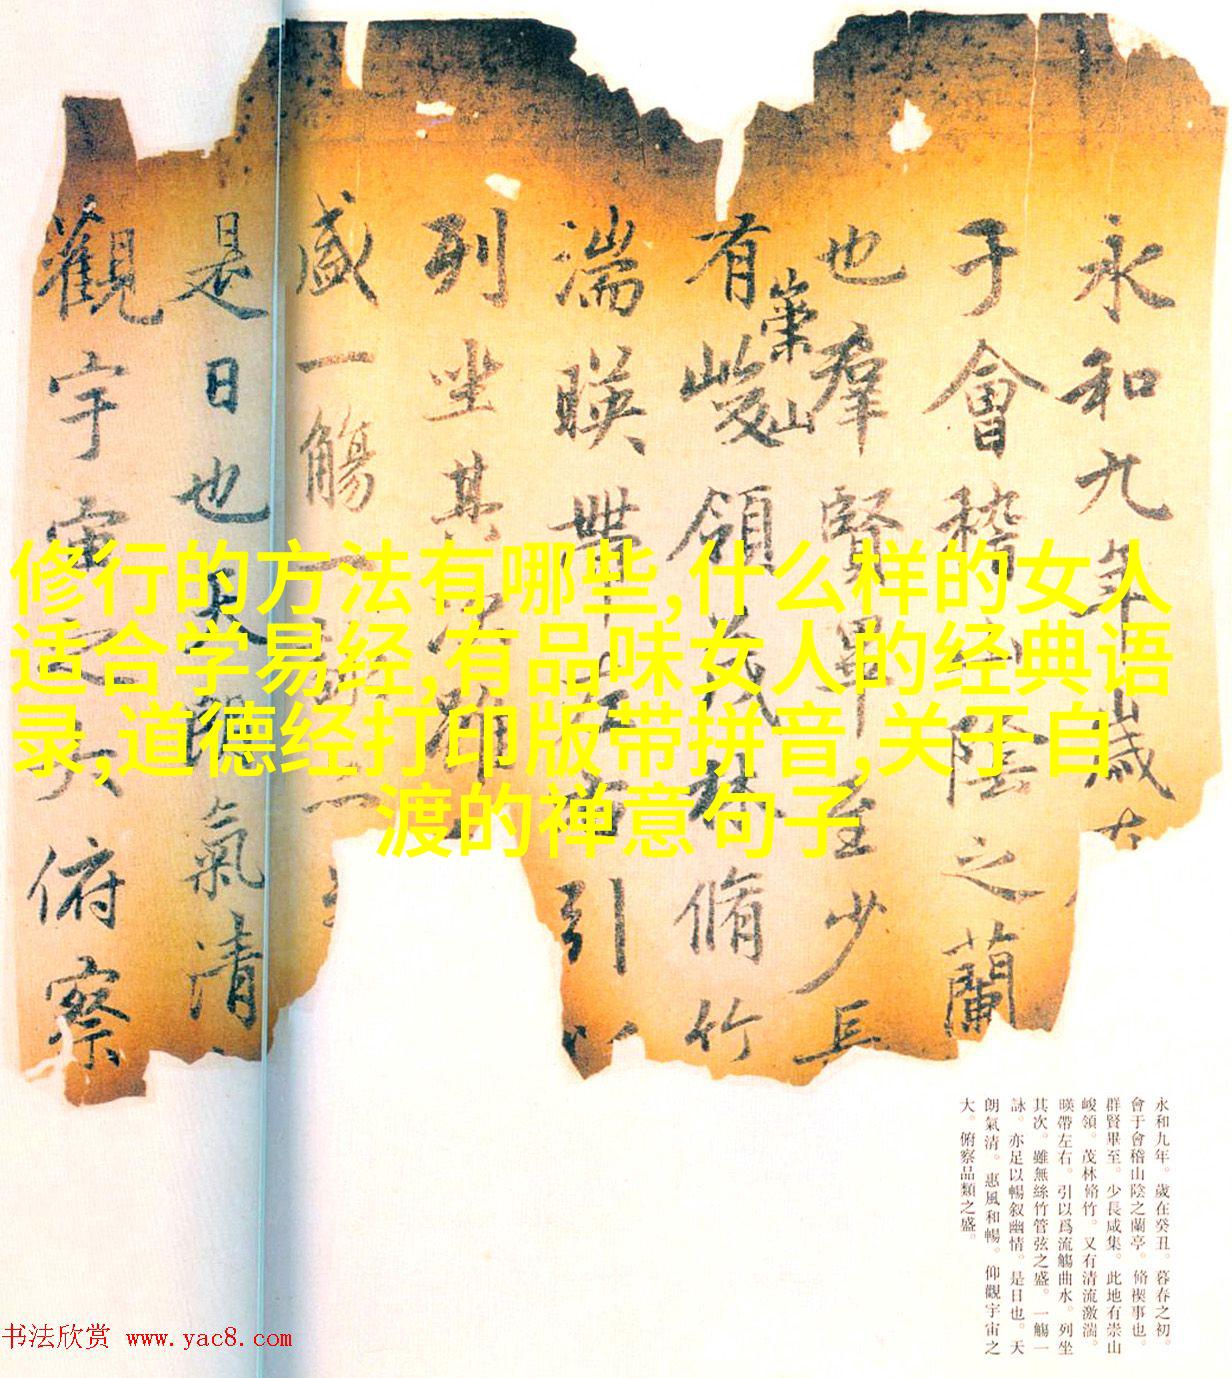 永和九年歲在
于會稽山陰之蘭
也羣賢畢至少長
有崇山峻領茂林脩竹
湍暎帶左右引以
列坐其次雖
盛一觴一詠亦
是日也天朗氣清
觀宇宙之大俯察
修行的方法有哪些,什么样的女人
适合学易经,有品味女人的经典语
录,道德经打印版带拼音,关于自
渡的禅意句子
永和九年。歲在癸丑。暮春之初。
會于會稽山陰之蘭亭。脩禊事也。
群賢畢至。少長咸集。此地有崇山
峻領。茂林脩竹。又有清流激湍。
暎帶左右。引以爲流觴曲水。列坐
其次。雖無絲竹管弦之盛。一觴一
詠。亦足以暢叙幽情。是日也。天
朗氣清。惠風和暢。仰觀宇宙之
大。俯察品類之盛。
书法欣赏 www.yac8.com